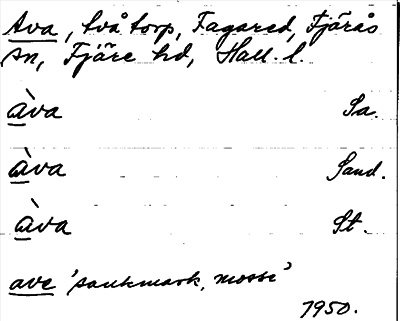 Ava, två torp, Fagared, Fjärås
sn, Fjäre hd, Hall. l.
àva Sa.
àva Sand.
àva St.
ave 'sankmark, mosse'
1950.